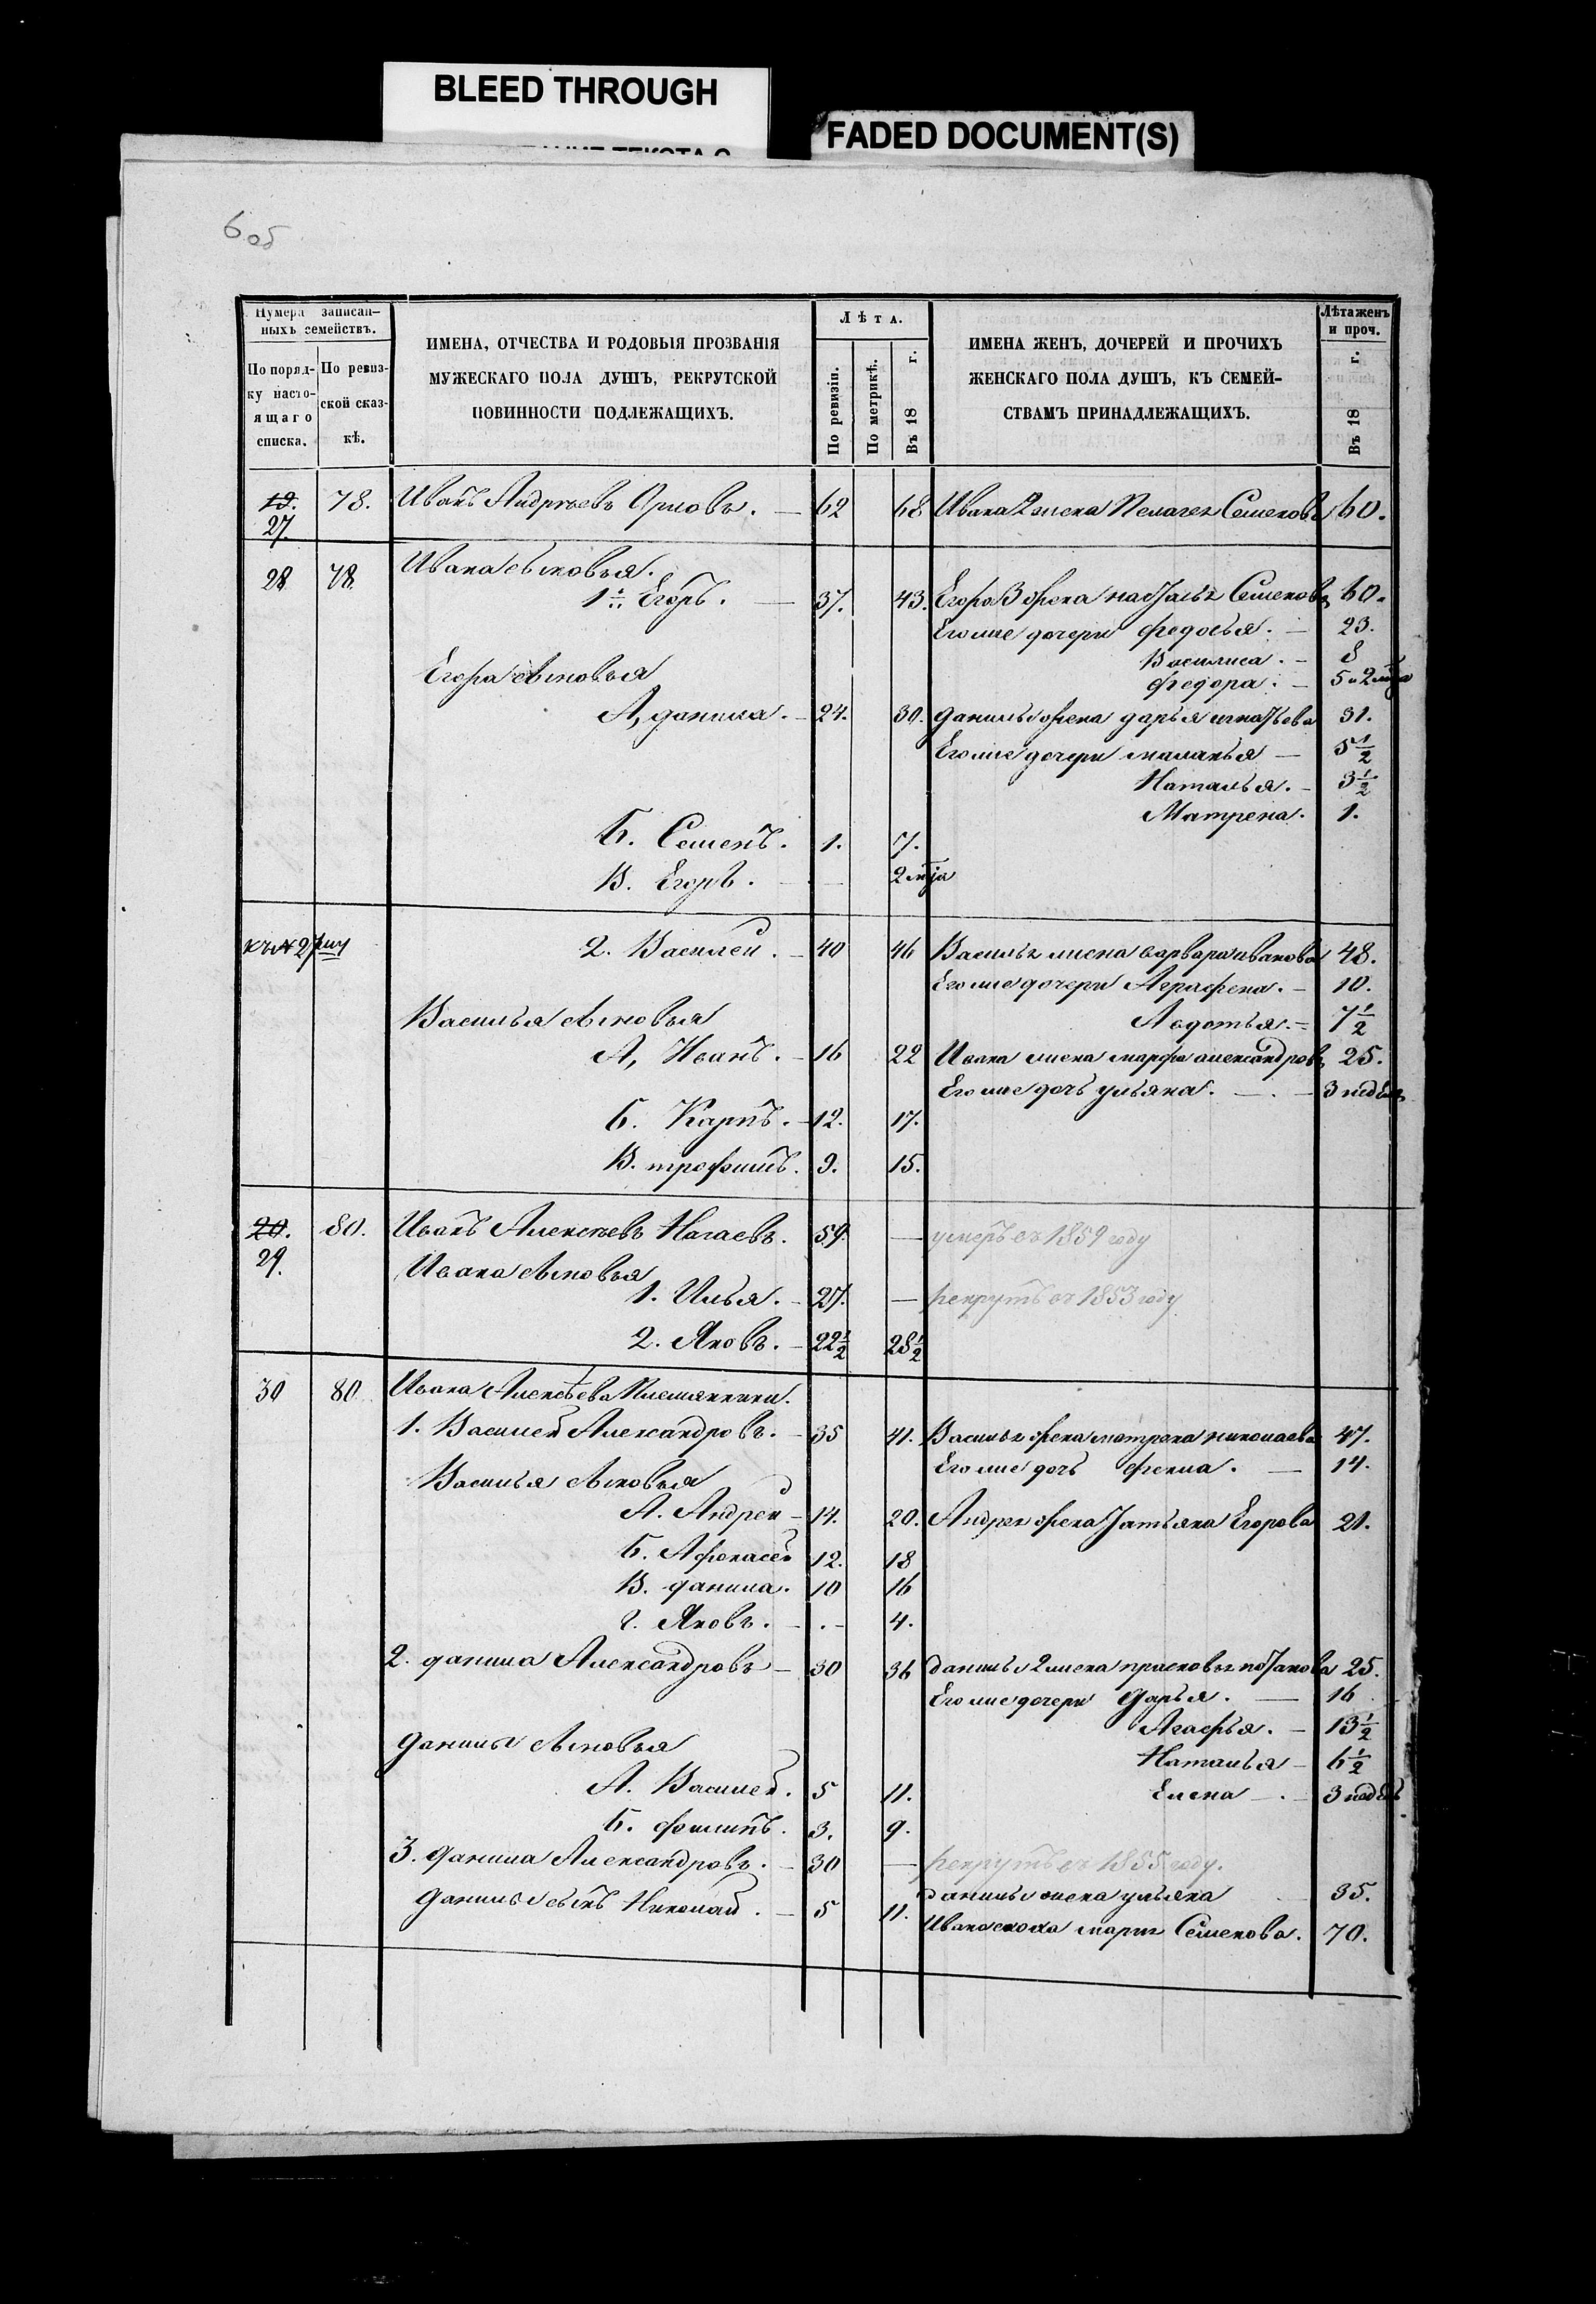 BLEED THROUGH
FADED DOCUMENT(S)
6 об
Нумера записан-
ныхъ семействъ.
По поряд-
ку насто-
ящаго
списка.
По ревиз-
ской сказ-
кѣ.
ИМЕНА, ОТЧЕСТВА И РОДОВЫЯ ПРОЗВАНІЯ
МУЖЕСКАГО ПОЛА ДУШЪ, РЕКРУТСКОЙ
ПОВИННОСТИ ПОДЛЕЖАЩИХЪ.
Лѣта.
По ревизіи.
По метрикѣ.
Въ 18 г.
ИМЕНА ЖЕНЪ, ДОЧЕРЕЙ И ПРОЧИХЪ
ЖЕНСКАГО ПОЛА ДУШЪ, КЪ СЕМЕЙ-
СТВАМЪ ПРИНАДЛЕЖАЩИХЪ.
Лѣта женъ
и проч.
Въ 18 г.
19. 78. Иванъ Андреевъ Орловъ. 62 68 Ивана 2 жена Пелагея Семенова 60.
27.
28 78 Ивана сыновья.
1й Егоръ. 37. 43. Егора 3 жена Наталья Семенова 60.
Его же дочери Федосья. 23.
Василиса. 8
Егора сыновья Федора. 5 и 2 мца
А, Данила. 24. 30. Данилы жена Дарья Игнатьева 31.
Его же дочери Маланья 5 1/2
Наталья. 3 1/2
Матрена. 1.
Б. Семенъ. 1. 7.
В. Егоръ. 2 мца
Къ № 27му 2. Василей. 40 46 Василья жена Варвара Иванова 48.
Его же дочери Аграфена. 10.
Василья сыновья Авдотья. 7 1/2
А, Иванъ. 16 22 Ивана жена Марфа Александрова 25.
Его же дочь Ульяна. 3 недели
Б. Карпъ. 12. 17.
В. Трофимъ. 9. 15.
20. 80. Иванъ Алексеевъ Нагаевъ. 59. умеръ въ 1859 году
29. Ивана сыновья
1. Илья. 27. рекрутъ въ 1853 году
2. Яковъ. 22 1/2 28 1/2
30 80 Ивана Алексеева племянники.
1. Василей Александровъ. 35 41. Василья жена Матрена Николаева 47.
Его же дочь Фекла. 14.
Василья сыновья
А. Андрей 14. 20. Андрея жена Татьяна Егорова 21.
Б. Афонасей 12. 18
В. Данила. 10 16
Г. Яковъ. 4.
2. Данила Александровъ 30 36 Данилы 2 жена Прасковья 25.
Его же дочери Дарья. 16
Агафья. 13 1/2
Данилы сыновья
Наталья 6 1/2
А. Василей. 5 11. Елена 3 недель
Б. Фомин. 3. 9.
3. Данила Александровъ. 30 рекрутъ въ 1855 году.
Данилы жена Ульяна 35.
Данилы сынъ Николай. 5 11.
Ивана сноха Марья Семенова. 70.